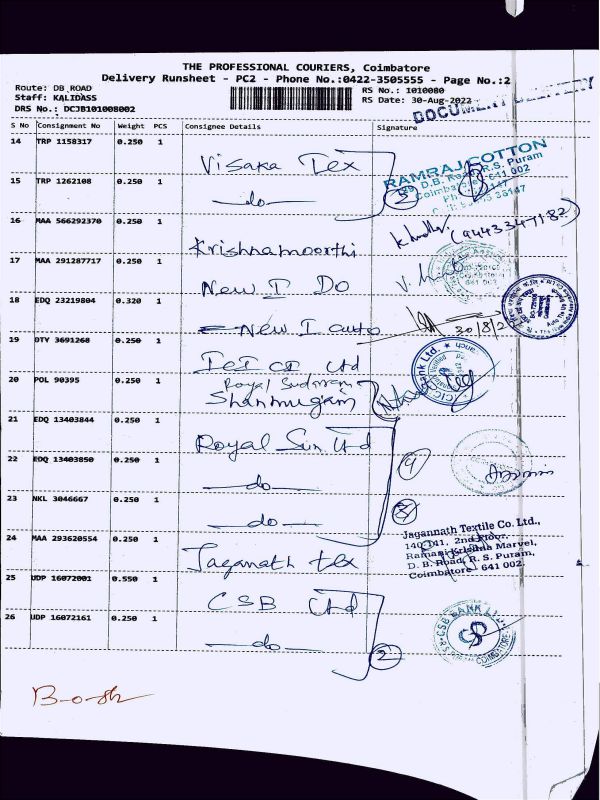 THE PROFESSIONAL COURIERS, Coimbatore
Delivery Runsheet - PC2 - Phone No.:0422-3505555 - Page No.:2
Route: DB ROAD
Staff: KALIDASS
DRS No.: DCJB101008002
RS No.: 1010080
RS Date: 30-Aug-2022
DOCUMENT DELIVERY
S No Consignment No Weight PCS Consignee Details Signature
14 TRP 1158317 0.250 1 Visaka Tex
RAMRAJ COTTON
D.B. Road, R.S. Puram
Coimbatore 641 002
15 TRP 1262108 0.250 1 —do— 2
16 MAA 566292370 0.250 1 Krishnamoorthi (9443347182)
17 MAA 291287717 0.250 1 New I Do
18 EDQ 23219804 0.320 1 New I auto 30/8/2
19 DTV 3691268 0.250 1 Ltd
20 POL 90395 0.250 1 Royal Sundram
Shanmugam
21 EDQ 13403844 0.250 1 Royal Sun Ltd
22 EDQ 13403850 0.250 1 —do—
23 NKL 3046667 0.250 1 —do— 3
24 MAA 293620554 0.250 1 Jaganath tex
Jagannath Textile Co. Ltd.,
140-141, 2nd Floor,
Ramani Krishna Marvel,
D. B. Road, R. S. Puram,
Coimbatore - 641 002.
25 UDP 16072001 0.550 1 CSB Ltd
26 UDP 16072161 0.250 1 —do— 2
CSB BANK LTD.
COIMBATORE